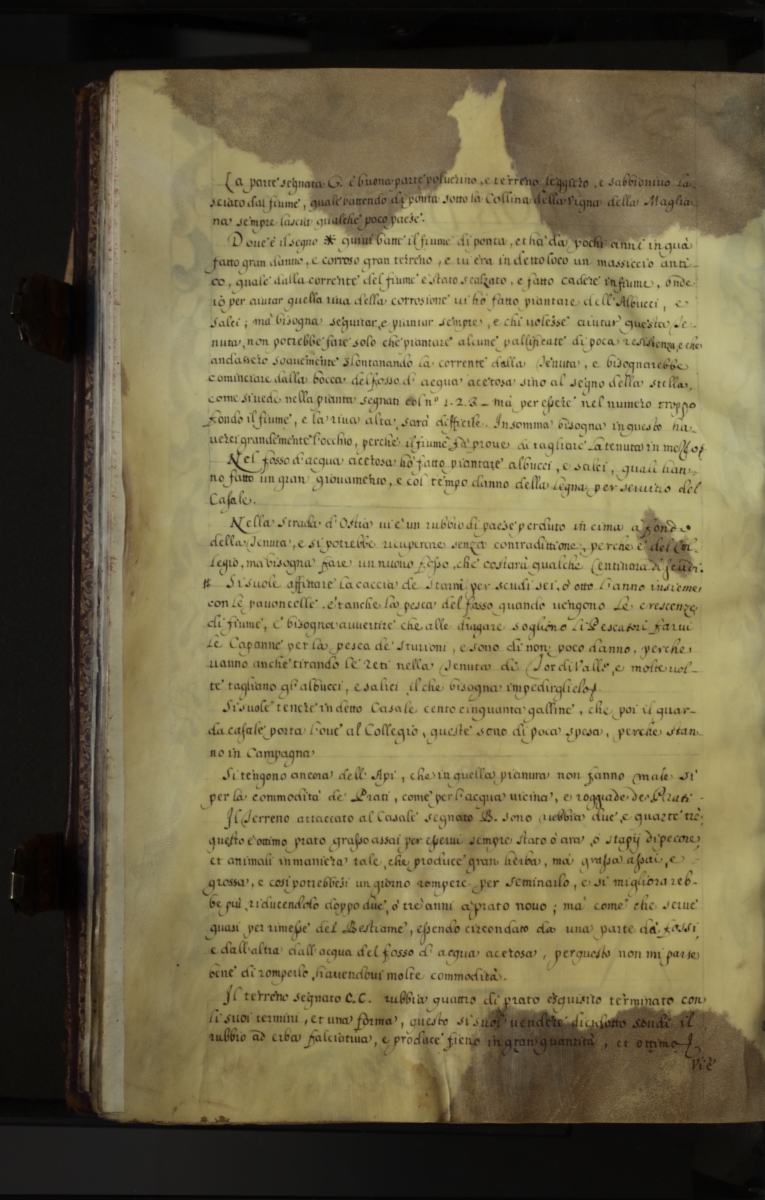 La parte segnata G. è buona parte polverino, e terreno leggiero, e sabbionivo la-
sciato dal fiume, quale battendo di ponta sotto la Collina della Vigna della Maglia-
na sempre lascia qualche poco paese.
Dove è il segno * quivi batte il fiume di ponta, et hà da pochi anni in quà
fatto gran danno, e corroso gran terreno, e vi era in detto loco un massiccio anti-
co, quale dalla corrente del fiume è stato scalzato, e fatto cadere in fiume, onde
iò per aiutar quella riva della corrosione vi hò fatto piantare dell'Albucci, e
salci; mà bisogna seguitar, e piantar sempre, e chi volesse aiutar questa Te-
nuta, non potrebbe fare solo che piantare alcune passificate di poca resistenza, e che
andassero soavemente slontanando la corrente dalla Tenuta, e bisognarebbe
cominciare dalla bocca del fosso d'acqua acetosa sino al segno della stella,
come si vede nella pianta segnati col nº 1.2.3 - mà per essere nel numero troppo
fondo il fiume, e la riva alta, sarà difficile. Insomma bisogna in questo ha-
verci grandemente l'occhio, perche il fiume fà prove di tagliare la tenuta in mezzo.
Nel fosso d'acqua acetosa hò fatto piantare albucci, e salci, quali han-
no fatto un gran giovamento, e col tempo danno della legna per servitio del
Casale.
Nella strada d'Ostia vi è un rubbio di paese perduto in cima a fondo
della Tenuta, e si potrebbe ricuperare senza contradittione, perche è del Col-
legio, mà bisogna fare un nuovo fosso, che costarà qualche Centinara di scudi.
# Si suole affittare la caccia de Starni per scudi sei, ò otto l'anno insieme
con le pavoncelle. è tanche la pesca del fosso quando vengono le crescenze
di fiume, è bisogna avvertire che alle drugare sogliono li Pescatori farvi
le Capanne per la pesca de sturioni, e sono di non poco danno, perche
vanno anche tirando le reti nella Tenuta di Tor di Valle, e molte vol-
te tagliano gl'albucci, e salici, il che bisogna impedirglielo.
Si suole tenere in detto Casale cento cinquanta galline, che poi il guar-
da casale porta l'ove al Collegio, queste sono di poca spesa, perche stan-
no in Campagna
Si tengono ancora dell'Api, che in quella pianura non fanno male si
per la commodità de Prati, come per l'acqua vicina, e roggiade de Prati.
Il Terreno attaccato al Casale segnato B. sono rubbia due, e quarte trè,
questo è ottimo prato grasso assai per esservi sempre stato ò ara, ò stapij di pecore,
et animali in maniera tale, che produce gran herba, mà grassa assai, e
grossa, e così potrebbesi un giorno rompere per seminarlo, e si migliorareb-
be più, riducendolo doppo due, ò trè anni a prato novo; mà come che serve
quasi per rimesse del Bestiame, essendo circondato da una parte da fossi
e dall'altra dall'acqua del fosso d'acqua acetosa, per questo non mi parse
bene di romperlo, havendovi molte commodità.
Il terreno segnato C.C. rubbia quattro di prato esquisito terminato con
li suoi termini, et una forma, questo si suol vendere diciotto scudi il
rubbio ad erba falciativa, e produce fieno in gran quantità, et ottimo.
Vi è